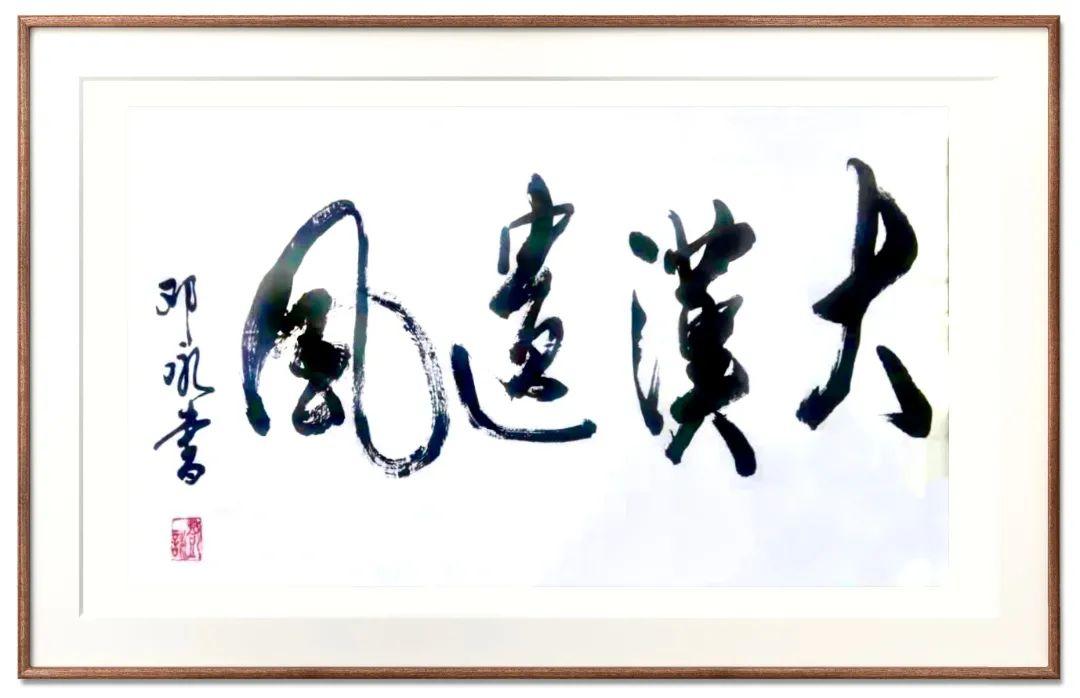 大漢遺風
邓咏書